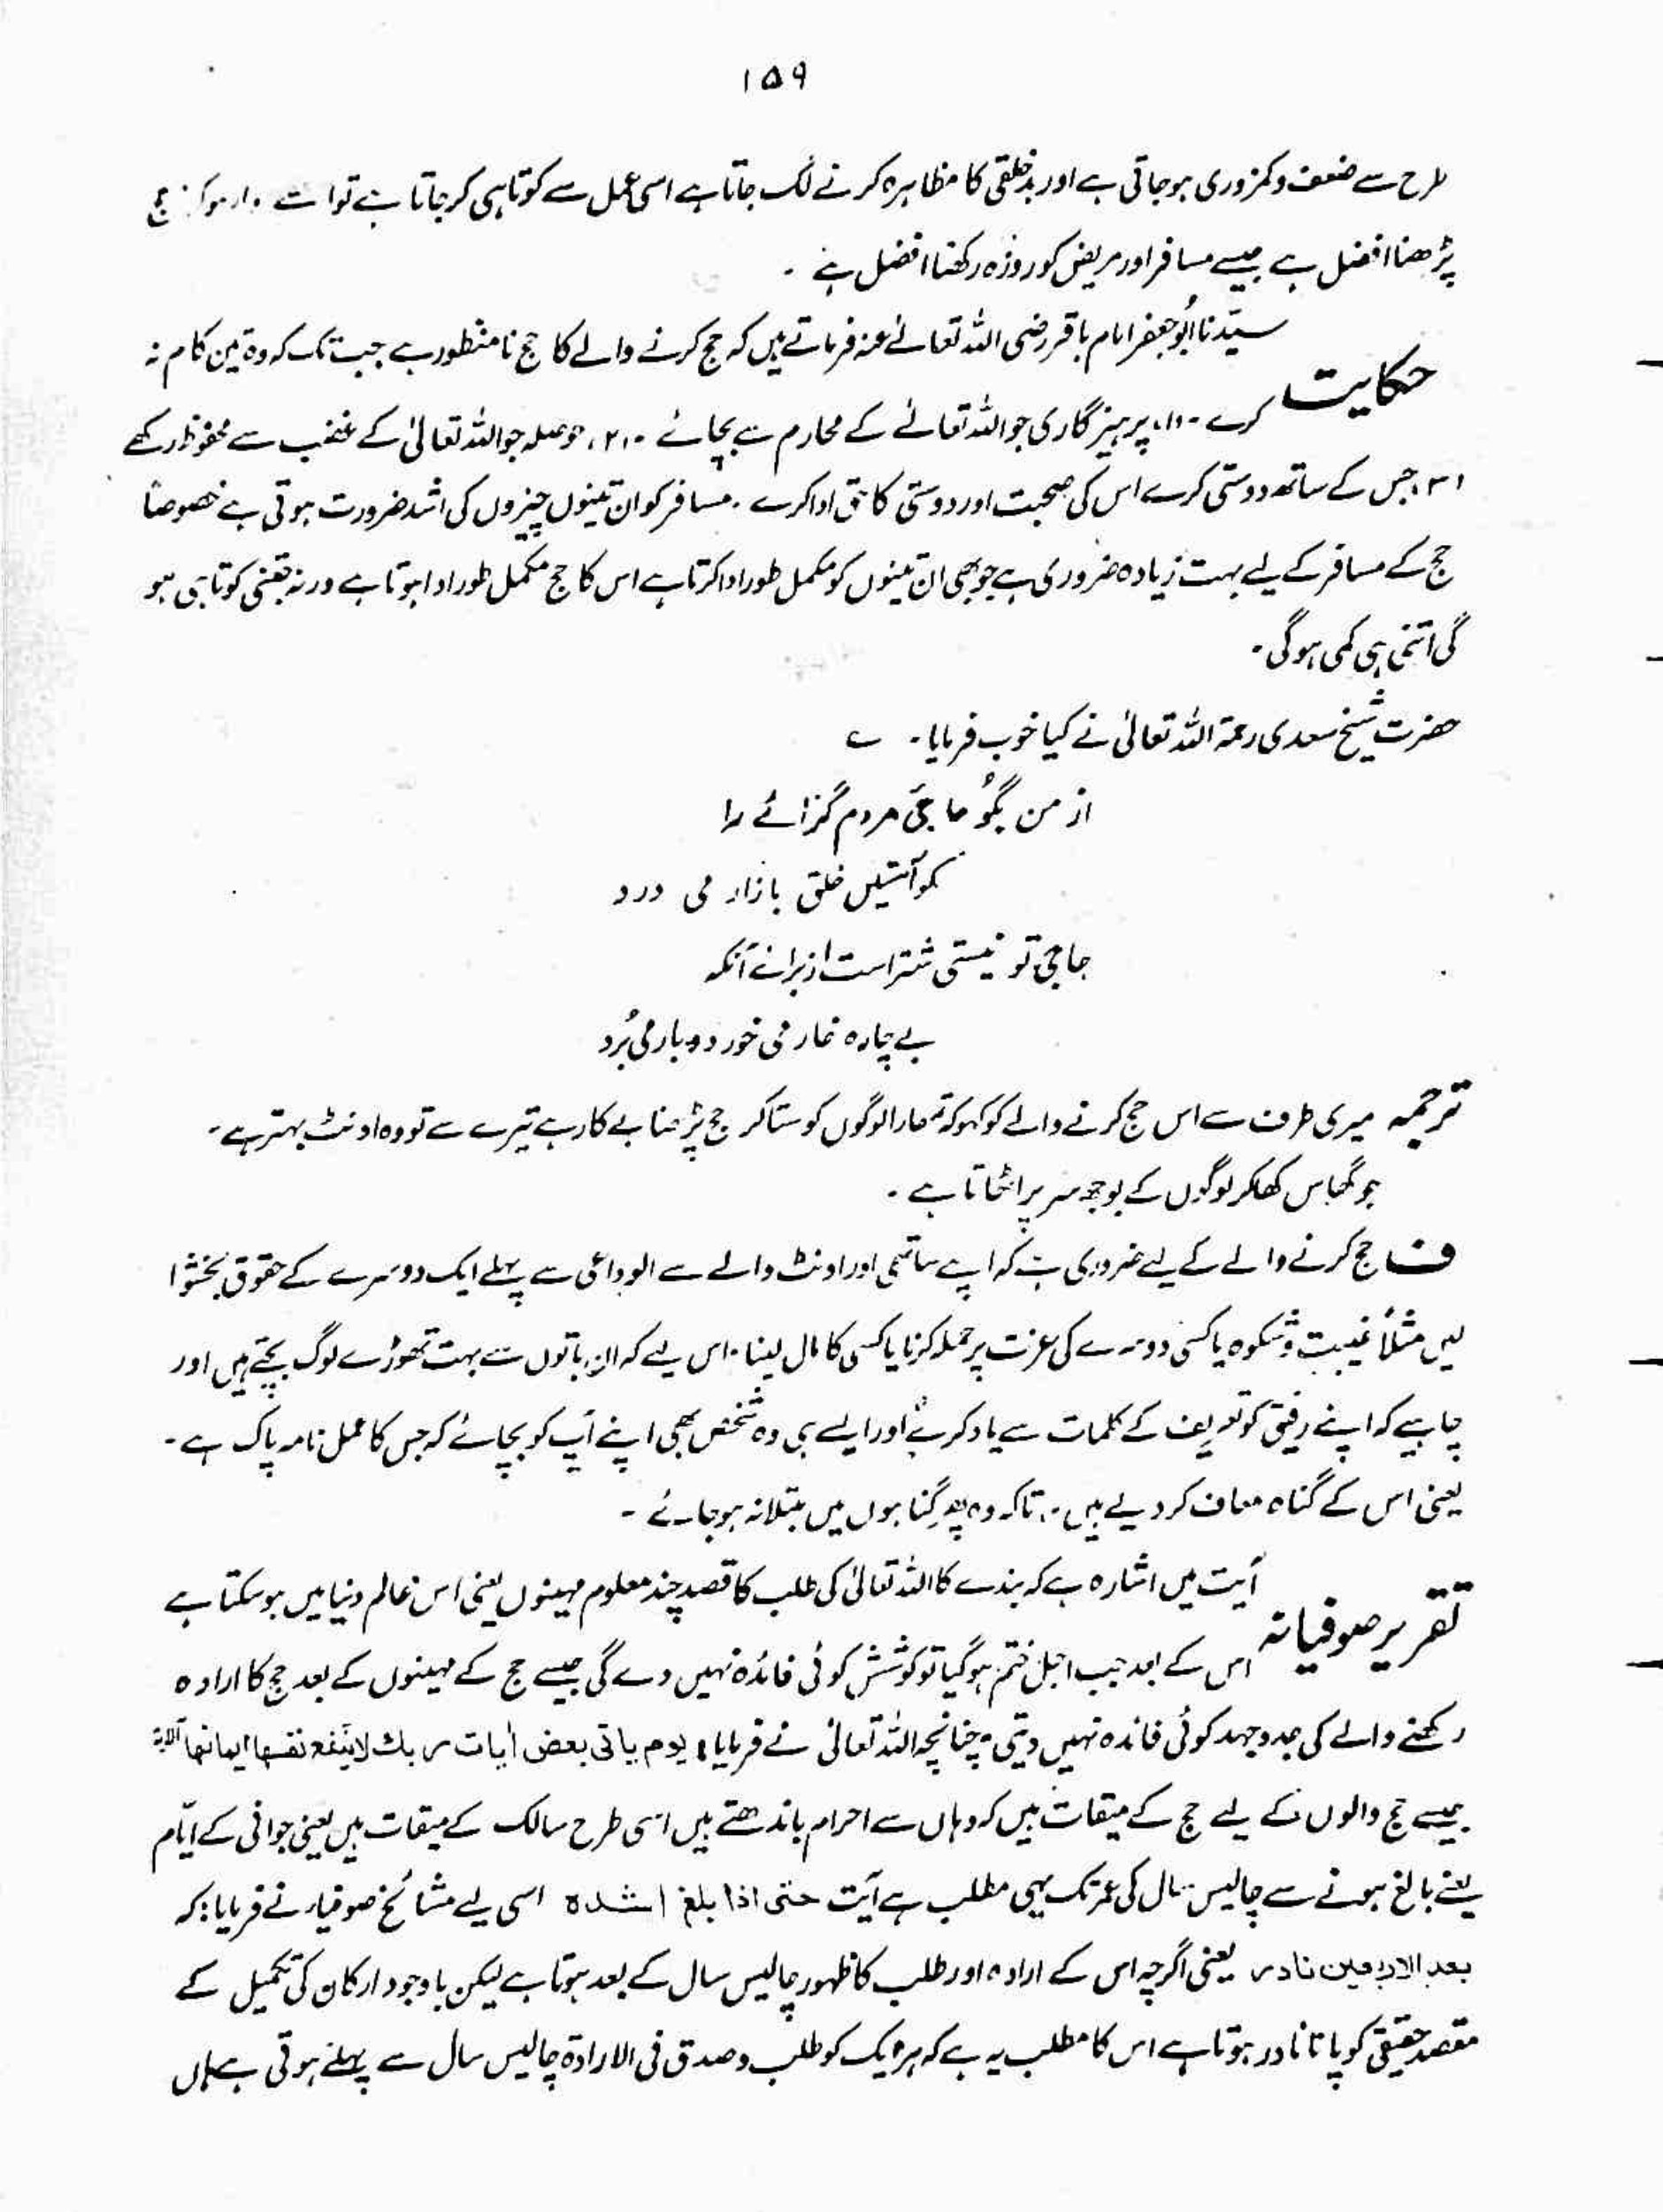 ۱۵۹
طرح سے ضعف وکمزوری ہوجاتی ہے اور بدخلقی کا مظاہرہ کرنے لگ جاتا ہے اسی عمل سے کوتاہی کر جاتا ہے تو اسے ہوکر حج
پڑھنا افضل ہے جیسے مسافر اور مریض کو روزہ رکھنا افضل ہے ۔
سیّدنا ابُوجعفر امام باقر رضی اللہ تعالےٰ عنہ فرماتے ہیں کہ حج کرنے والے کا حج نامنظور ہے جب تک کہ وہ تین کام نہ
حکایت
کرے ۔ (۱) پرہیزگاری جو اللہ تعالےٰ کے محارم سے بچائے ۔ (۲) حوصلہ جو اللہ تعالیٰ کے غضب سے محفوظ رکھے
(۳) جس کے ساتھ دوستی کرے اس کی صحبت اور دوستی کا حق ادا کرے ۔ مسافر کو ان تینوں چیزوں کی اشد ضرورت ہوتی ہے خصوصاً
حج کے مسافر کے لیے بہت زیادہ ضروری ہے جو بھی ان تینوں کو مکمل طور ادا کرتا ہے اس کا حج مکمل طور ادا ہوتا ہے ورنہ جتنی کوتاہی ہو
گی اتنی ہی کمی ہوگی ۔
حضرت شیخ سعدی رحمۃ اللہ تعالیٰ نے کیا خوب فرمایا ۔ ے
از من بگوُ حاجیَ مردم گزائے را
کو آستیں خلق بازار می درد
حاجی تو نیستی شتر است از برائے آنکہ
بے چارہ خار می خورد و بار می بُرد
ترجمہ میری طرف سے اس حج کرنے والے کو کہو کہ تمھارا لوگوں کو ستا کر حج پڑھنا بے کار ہے تیرے سے تو وہ اونٹ بہتر ہے ۔
جو گھاس کھا کر لوگوں کے بوجھ سر پر اٹھاتا ہے ۔
ف حج کرنے والے کے لیے ضروری ہے کہ اپنے ساتھی اور اونٹ والے سے الوداعی سے پہلے ایک دوسرے کے حقوق بخشوا
لیں مثلاً غیبت و شکوہ یا کسی دوسرے کی عزت پر حملہ کرنا یا کسی کا مال لینا ۔ اس لیے کہ ان باتوں سے بہت تھوڑے لوگ بچتے ہیں اور
چاہیے کہ اپنے رفیق کو تعریف کے کلمات سے یاد کرے اور ایسے ہی وہ شخص بھی اپنے آپ کو بچائے کہ جس کا عمل نامہ پاک ہے ۔
یعنی اس کے گناہ معاف کر دیے ہیں ۔ تاکہ وہ پھر گناہوں میں مبتلا نہ ہوجائے ۔
آیت میں اشارہ ہے کہ بندے کا اللہ تعالیٰ کی طلب کا قصد چند معلوم مہینوں یعنی اس عالم دنیا میں ہوسکتا ہے
تقریر صوفیانہ
اس کے بعد جب اجل ختم ہوگیا تو کوشش کوئی فائدہ نہیں دے گی جیسے حج کے مہینوں کے بعد حج کا ارادہ
رکھنے والے کی جدوجہد کوئی فائدہ نہیں دیتی ؛ چنانچہ اللہ تعالیٰ نے فرمایا ؛ یوم یاتی بعض اٰیات ربك لاینفع نفسا ایمانھا الآیۃ
جیسے حج والوں کے لیے حج کے میقات ہیں کہ وہاں سے احرام باندھتے ہیں اسی طرح سالک کے میقات ہیں یعنی جوانی کے ایّام
یعنے بالغ ہونے سے چالیس سال کی عمر تک یہی مطلب ہے آیت حتی اذا بلغ اشدہ اسی لیے مشائخ صوفیا نے فرمایا : کہ
بعد الاربعین نادر یعنی اگرچہ اس کے ارادہ اور طلب کا ظہور چالیس سال کے بعد ہوتا ہے لیکن باوجود ارکان کی تکمیل کے
مقصد حقیقی کو پانا نادر ہوتا ہے اس کا مطلب یہ ہے کہ ہر ایک کو طلب و صدق فی الارادۃ چالیس سال سے پہلے ہوتی ہے ہاں